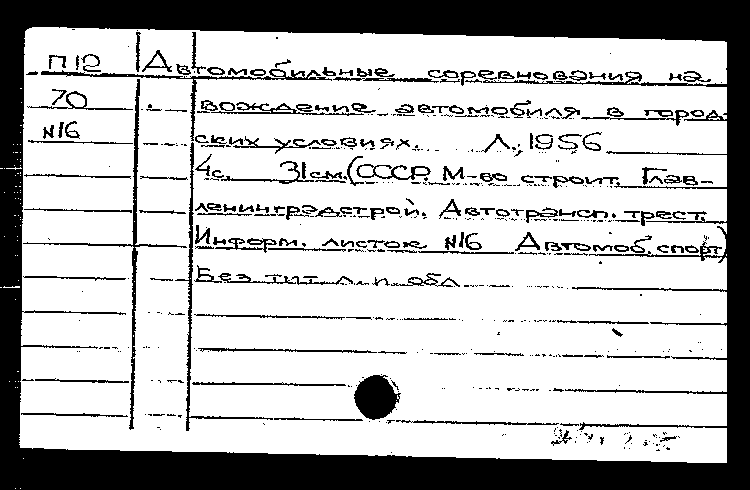 П12 Автомобильные соревнования на
70 вождение автомобиля в город-
№16 ских условиях. Л., 1956
4с. 31см. (СССР. М-во строит. Глав-
ленинградстрой. Автотрансп. трест.
Информ. листок №16 Автомоб. спорт)
Без тит. л. и обл.